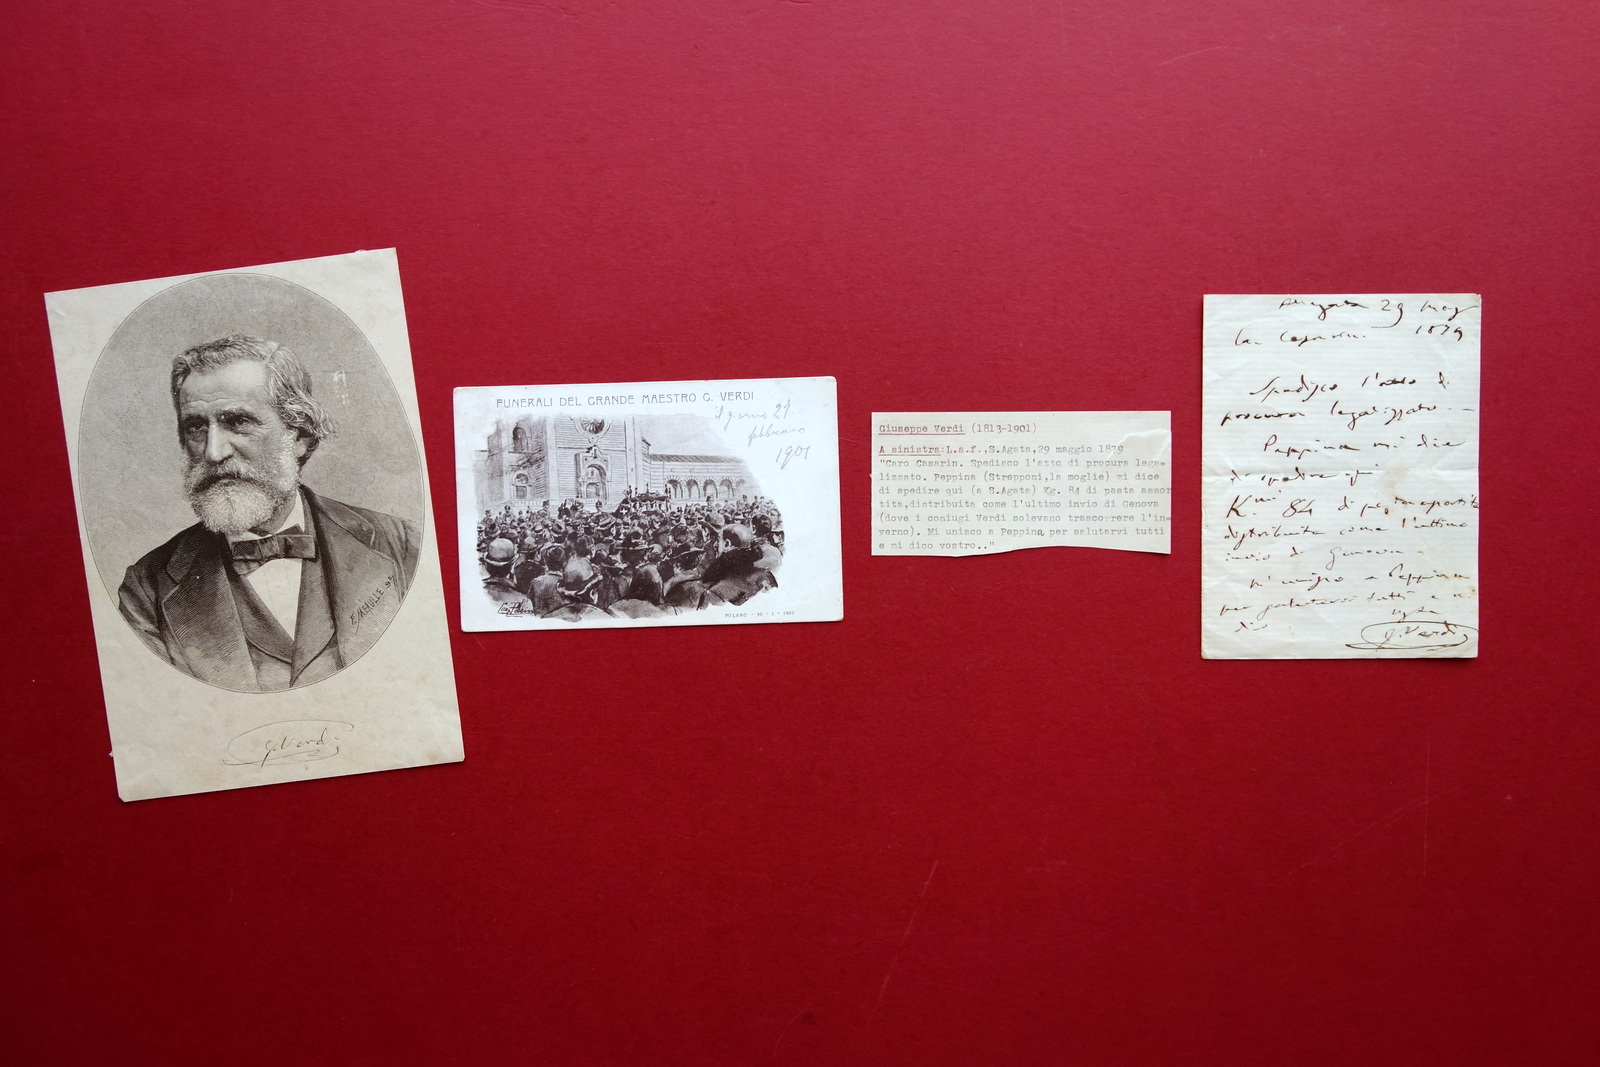 E. MEHULLE 92
G. Verdi
FUNERALI DEL GRANDE MAESTRO G. VERDI
il giorno 27
febbraio
1901
MILANO - 30 - 1 - 1901
Giuseppe Verdi (1813-1901)
A sinistra:L.a.f.,S.Agata,29 maggio 1879
"Caro Casarin. Spedisco l'atto di procura lega=
lizzato. Peppina (Strepponi,la moglie) mi dice
di spedire qui (a S.Agata) Kg. 84 di pasta assor
tita,distribuita come l'ultimo invio di Genova
(dove i coniugi Verdi solevano trascorrere l'in=
verno). Mi unisco a Peppina per salutarvi tutti
e mi dico vostro.."
29 Mag
1879
Spedisco l'atto di
procura legalizzato
Peppina mi dice
di spedire qui
K. 84 di
distribuita come l'ultimo
invio di Genova
M'unisco a Peppina
per salutarvi tutti e mi
dico
G. Verdi